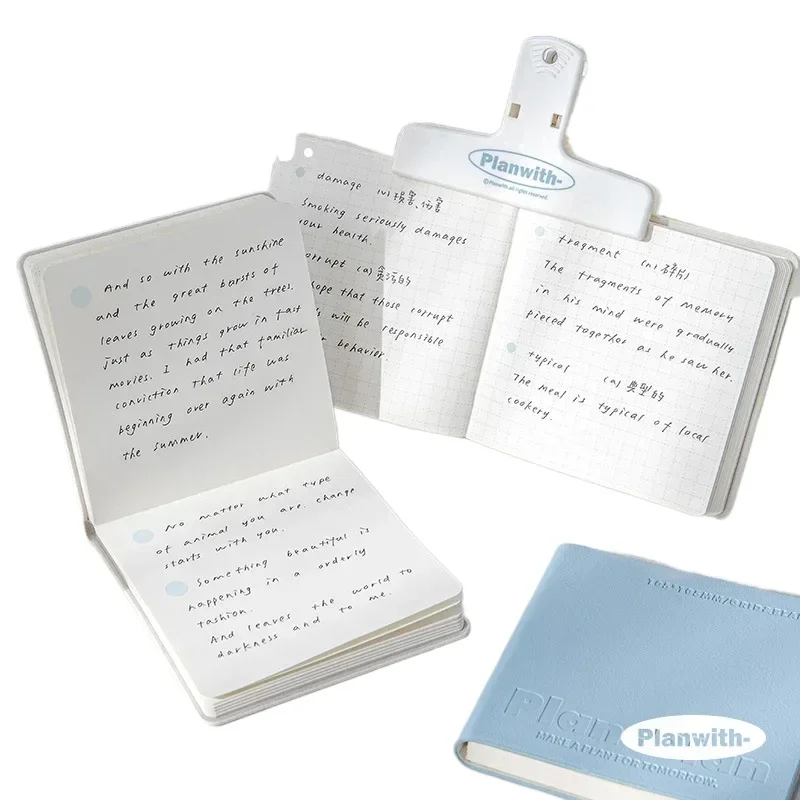 Planwith-
©Planwith all rights reserved.
damage (v) 损害、伤害
smoking seriously damages
your health.
corrupt (a) 贪污的
hope that those corrupt
will be responsible
behavior.
fragment (n) 碎片
The fragments of memory
in his mind were gradually
pieced together as he saw her.
typical (a) 典型的
The meal is typical of local
cookery.
And so with the sunshine
and the great bursts of
leaves growing on the trees.
just as things grow in fast
movies. I had that familiar
conviction that life was
beginning over again with
the summer.
No matter what type
of animal you are. change
starts with you.
Something beautiful is
happening in a orderly
fashion.
And leaves the world to
darkness and to me.
Plan
Planwith-
MAKE A PLAN FOR TOMORROW.